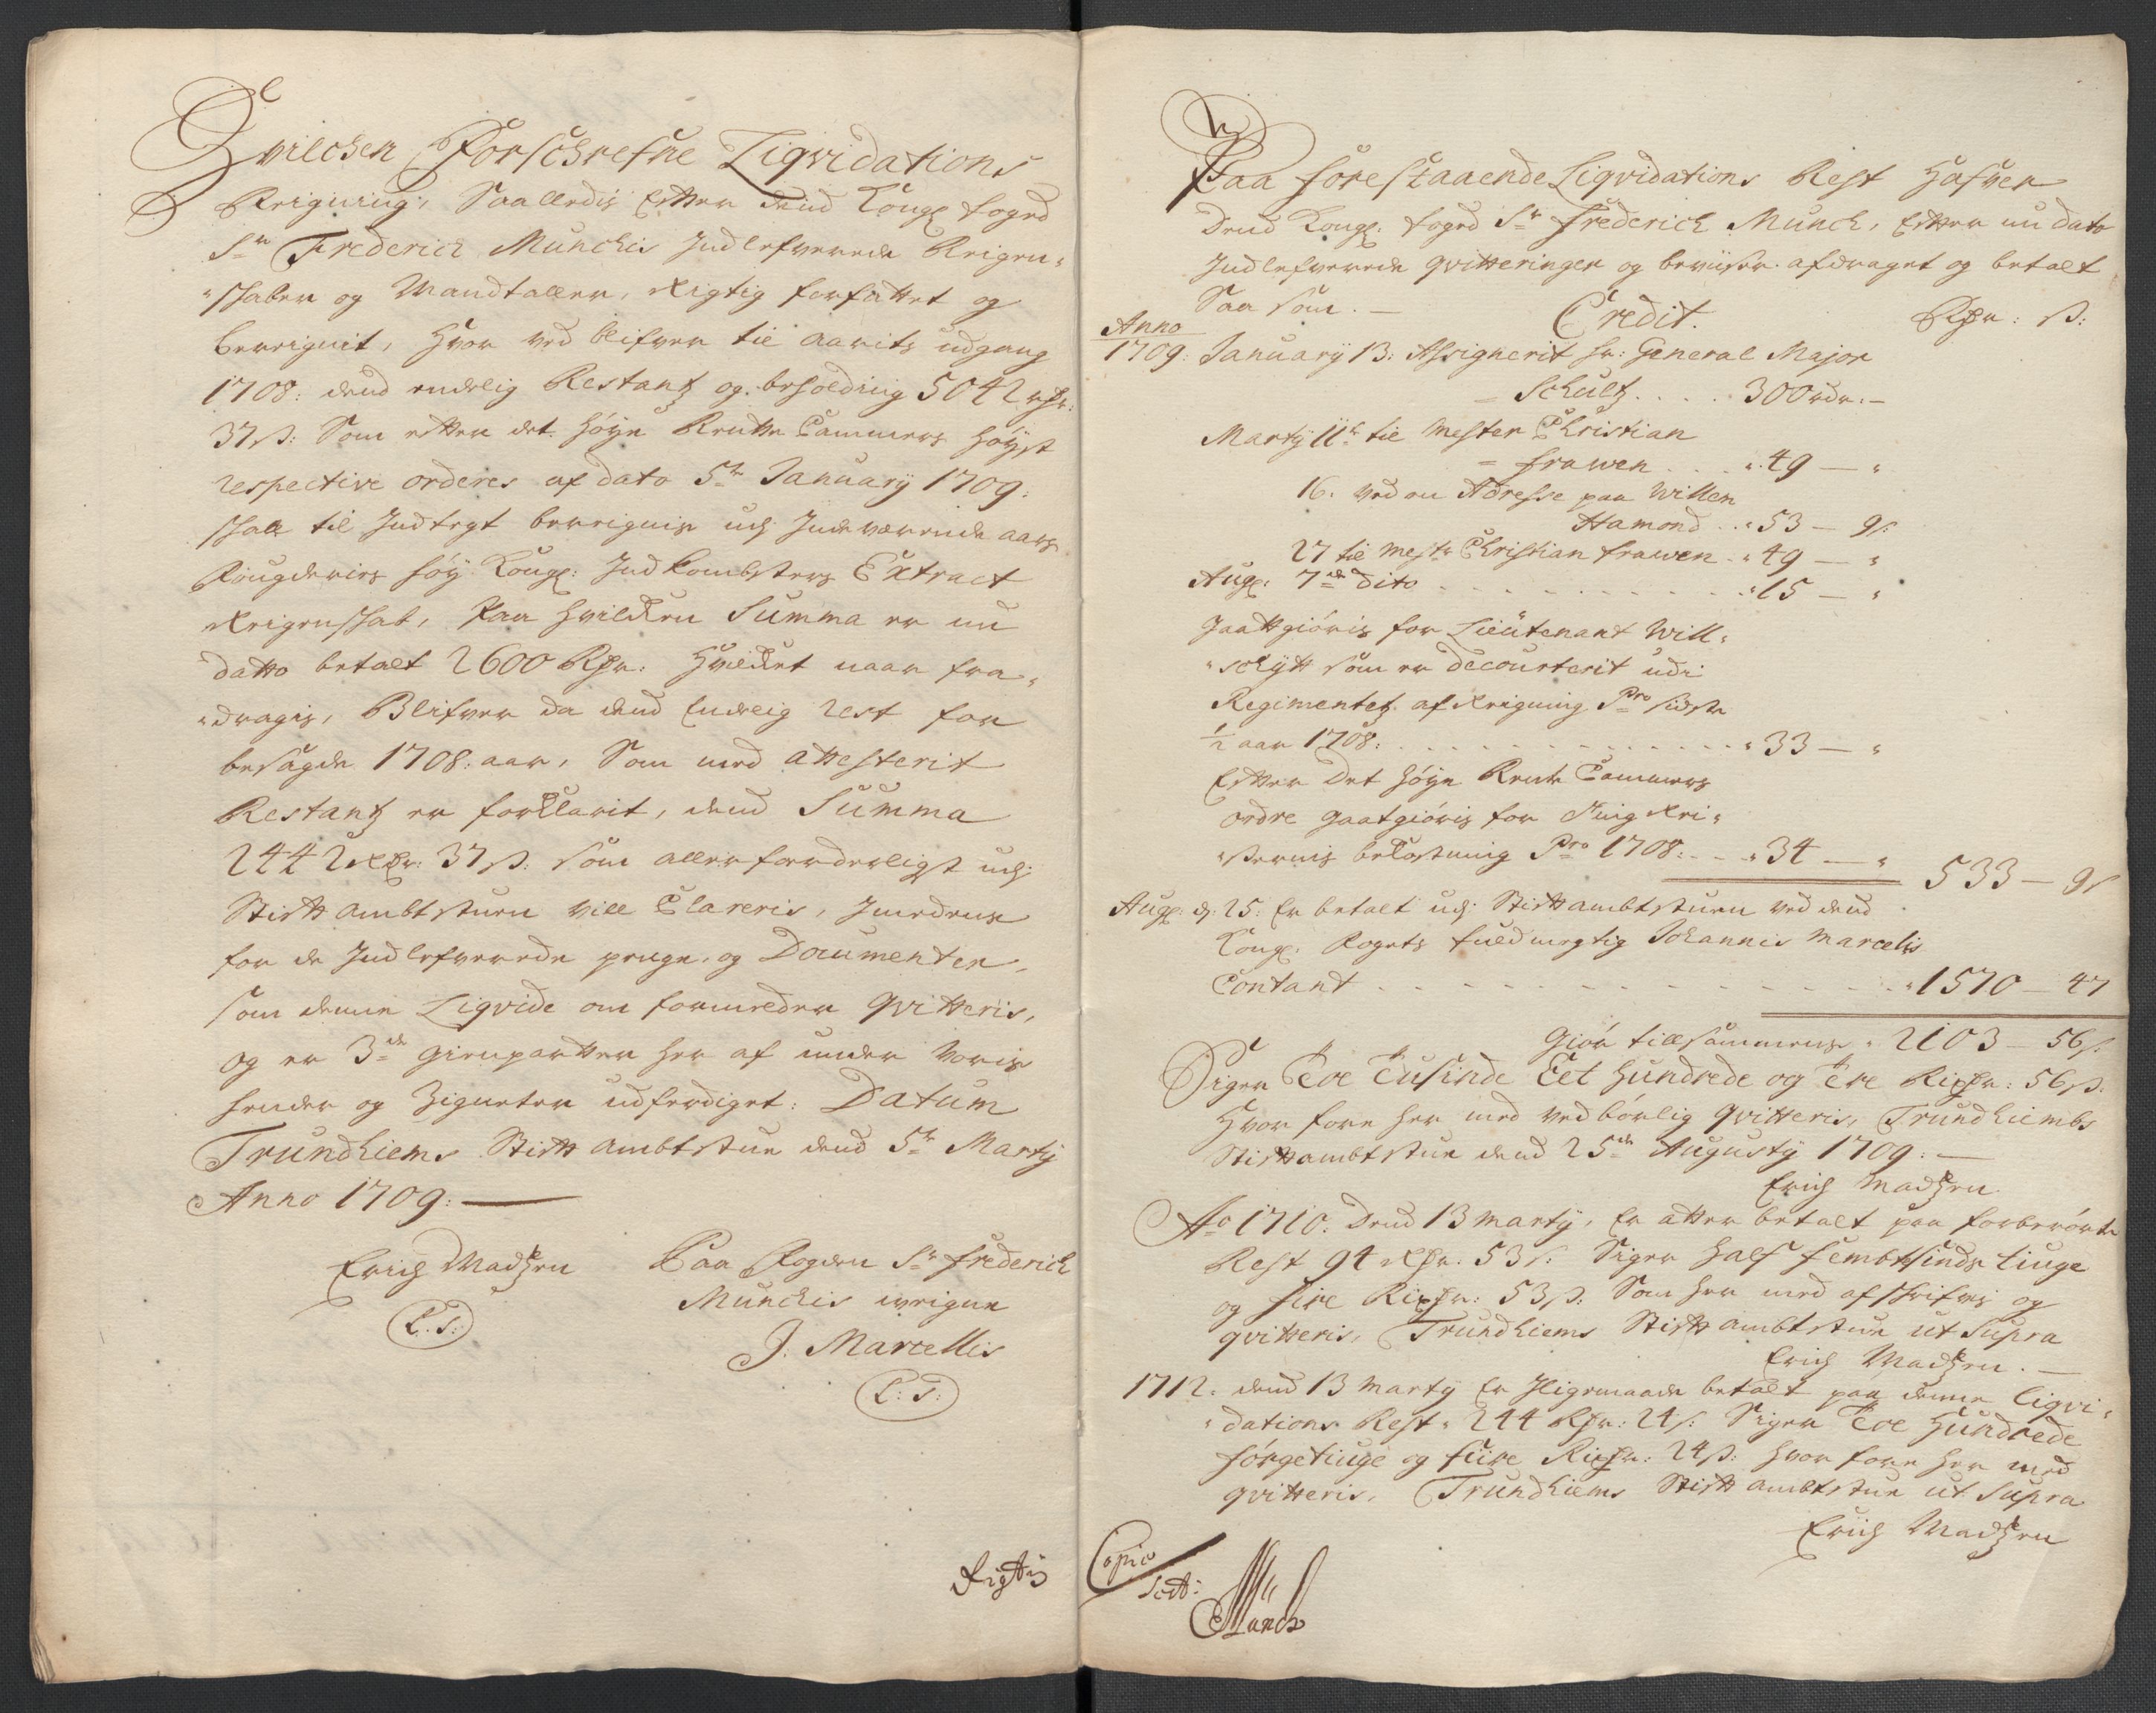 Hvilchen Forschrefne Liqvidations
Reigning, Saalledis Efter dend Kongl: foged
Sr Frederich Munchis Indlefverede Reigen-
schaber og Mandtaller, Rigtig forfattet og
bereignit, Hvor ved blifver til aarits udgang
1708: dend endelig Restantz og beholdning 5042 rdr:
37 s: Som efter det høye Rente Cammers høyst
respective orderes af dato 5te January 1709:
schall til Indtegt bereignis udj Indeværende aars
Fougderies høy Kongl: Indkombsters Extract
Reigenschab, Paa hvilcken Summa er nu
datto betalt 2600 Rdr: Hvilcket naar fra-
dragis, Blifver da dend Endelig rest for
besagde 1708: aar, Som med attesterit
Restantz er forklarit, dend Summa
2442 Rdr: 37 s: som allerforderligst udj
Stiftambtstuen vill Clareris, Imedens
for de Indlefverede penge, og Documenter,
som denne Liqvide om formelder Qvitteris,
og er 3de gienparter her af under voris
hender og Zigneter udferdiget: Datum
Trundhiems Stiftambtstue dend 5te Marty
Anno 1709:
Erich Madtzen
L. S:
Paa Fogden Sr Frederich
Munchis veigne
J. Marcellis
L: S:
Rigtig
Paa forestaaende Liqvidations Rest Hafver
Dend Kongl: foged Sr Frederich Munch, Efter nu dato
Indlefverede qvitteringer og beviiser afdraget og betalt
Saa som.
Credit. Rdr: s:
Anno
1709: January 13: Assignerit hr: General Major
Schultz . . . . 300 rdr:
Marty 11te til Mester Christian
Frawen . . . 49 —
16: ved en Adresse paa Willen
Hamond . . 53 — 9 s:
27 til Mestr Christian Frawen . 49 —
Augl: 7de dito . . . . 15 —
Gaattgiøris for Lieutenant Will-
schytt som er decourterit udi
Regimentetz afreigning Pro sidste
½ aar 1708: . . . . 33 —
Efter Det høye Rente Cammers
ordre gaatgiøris for Ting Rei-
sernis bekostning Pro 1708: . . . 34 — 533 — 9 s
Augl: d: 25: Er betalt udj Stiftambtstuen ved dend
Kongl: Fogets fuldmegtig Johannis Marcelis
Contant . . . . 1570 — 47
Giør tillsammens 2103 — 56 s:
Siger Toe Tusinde Eet hundrede og tre Rixdr: 56 s:
Hvor fore her med vedbørlig qvitteris, Trundhiembs
Stiftambtstue dend 25de Augusty 1709:
Erich Madtzen
Ao 1710: Dend 13 Marty, Er atter betalt paa forberørte
Rest 94 Rdr: 53 s: Siger Half fembtesinds tiuge
og fire Rixdr: 53 s: Som her med afschrifves og
qvitteris, Trundhiems Stiftambtstue ut Supra
Erich Madtzen.
1712: dend 13 Marty Er Iligemaade betalt paa denne Liqvi-
dations Rest 244 Rdr: 24 s: Siger Toe Hundrede
førgetiuge og fiire Rixdr: 24 s: hvor fore her med
qvitteris, Trundhiems Stiftambtstue ut Supra
Erich Madtzen
Copie
Munch